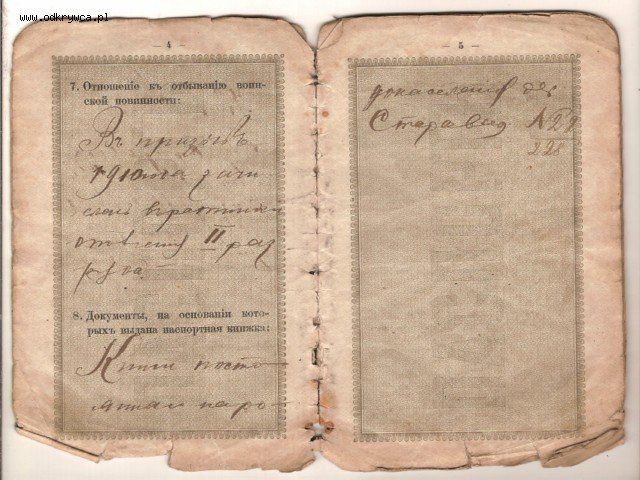 www.odkrywca.pl
— 4 —
7. Отношеніе къ отбыванію воин-
ской повинности:
Въ призывѣ
1910 года зачи
сленъ в ратники
ополченія II раз
ряда.
8. Документы, на основаніи кото-
рыхъ выдана паспортная книжка:
Книги посто
янная наро-
— 5 —
донаселенія дер
Старавид № 27
228